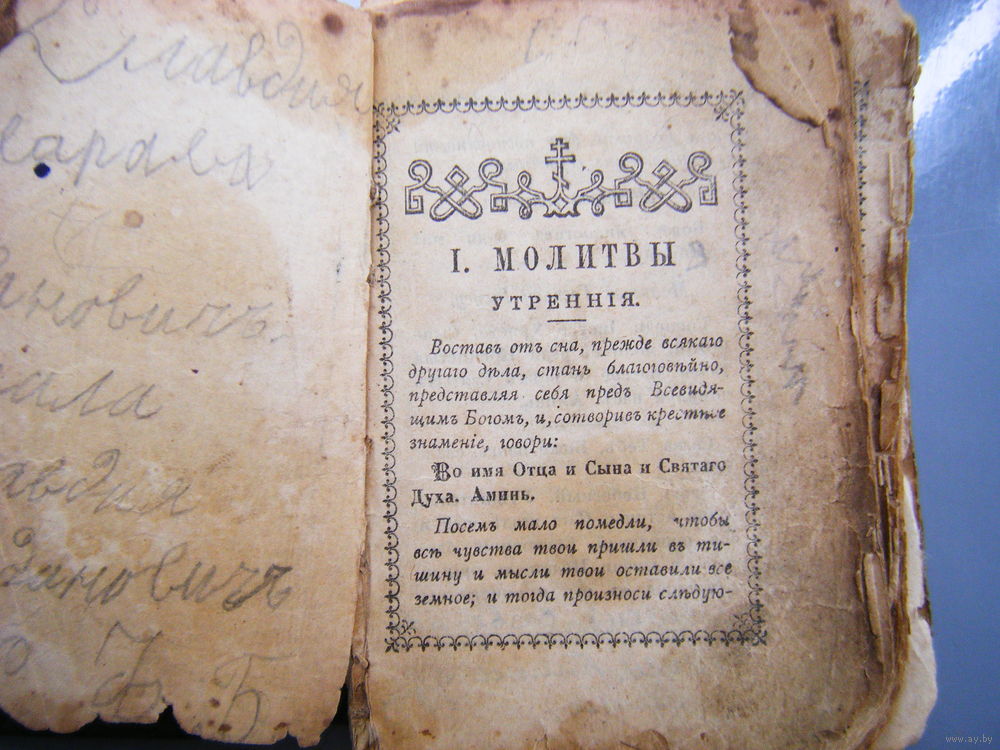 Клавдия
ановичъ
авдия
ановичъ
I. МОЛИТВЫ
УТРЕННІЯ.
Воставъ отъ сна, прежде всякаго
другаго дѣла, стань благоговѣйно,
представляя себя предъ Всевидя-
щимъ Богомъ, и, сотворивъ крестное
знаменіе, говори:
Во имя Отца и Сына и Святаго
Духа. Аминь.
Посемъ мало помедли, чтобы
всѣ чувства твои пришли въ ти-
шину и мысли твои оставили все
земное; и тогда произноси слѣдую-
www.ay.by